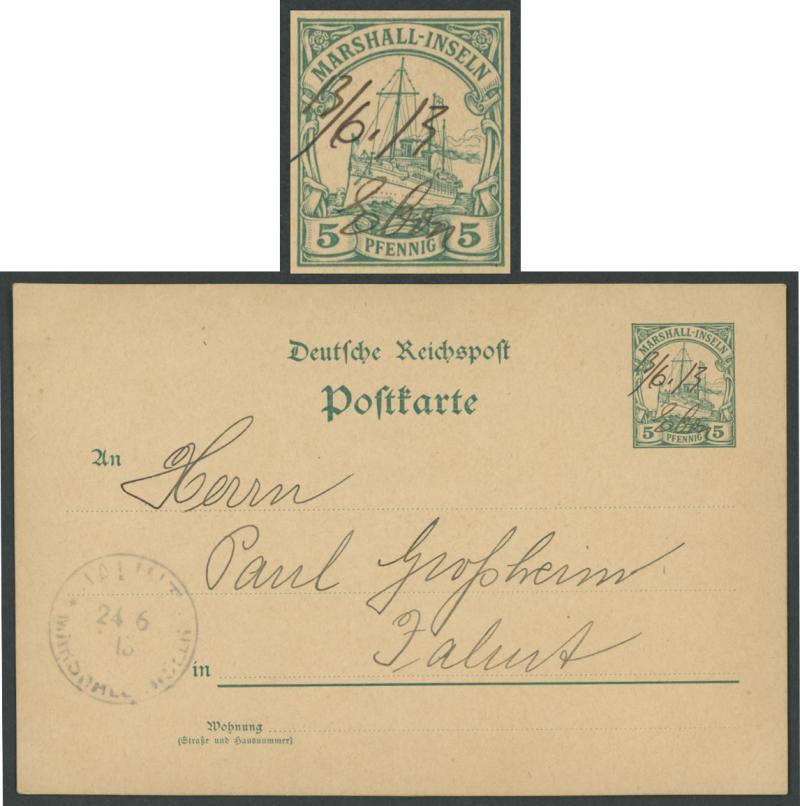 MARSHALL-INSELN
13/6.13
Ebon
5 PFENNIG 5
Deutsche Reichspost
Postkarte
MARSHALL-INSELN
13/6.13
Ebon
5 PFENNIG 5
An Herrn
Paul Großheim
in Jaluit
JALUIT
24 6
13
* MARSHALL-INSELN
Wohnung
(Straße und Hausnummer)